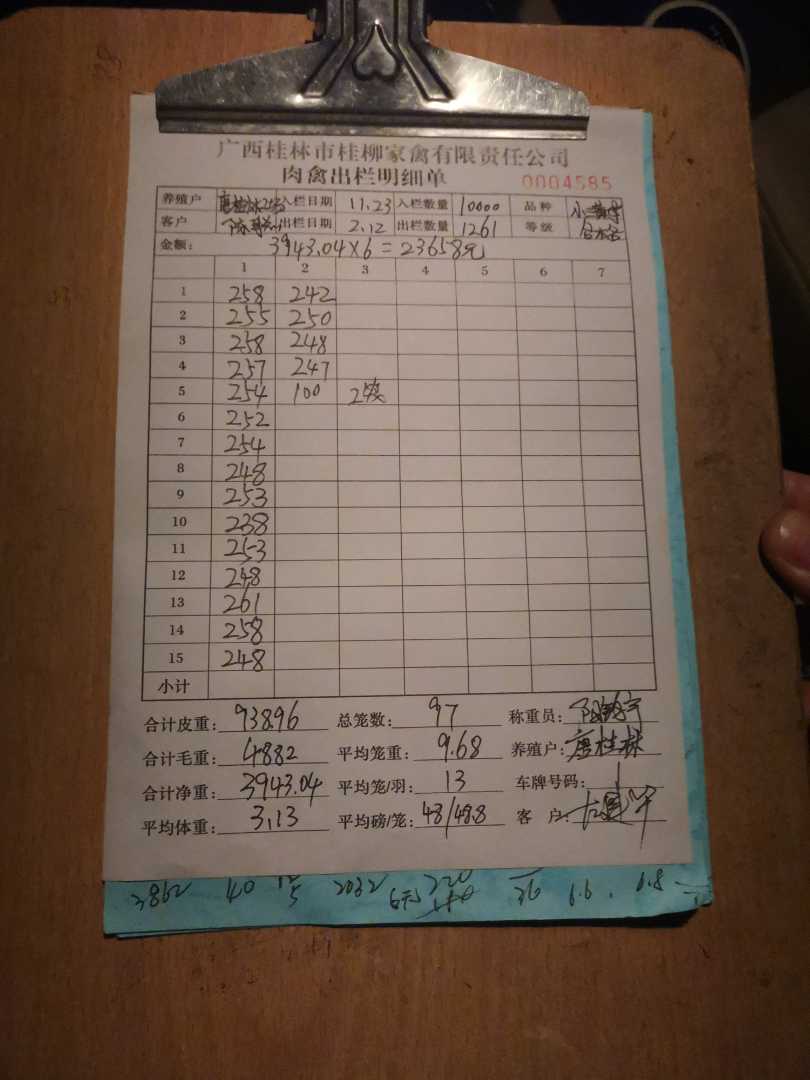 广西桂林市桂柳家禽有限责任公司
肉禽出栏明细单 0004585
养殖户 入栏日期 11.23 入栏数量 10000 品种
客户 出栏日期 2.12 出栏数量 1261 等级 合格
金额: 3943.04×6=23658元
1 2 3 4 5 6 7
1 258 242
2 255 250
3 258 248
4 257 247
5 254 100
6 252
7 254
8 248
9 253
10 238
11 253
12 248
13 261
14 258
15 248
小计
合计皮重: 938.96 总笼数: 97 称重员:
合计毛重: 4882 平均笼重: 9.68 养殖户: 唐桂林
合计净重: 3943.04 平均笼/羽: 13 车牌号码:
平均体重: 3.13 平均磅/笼: 48/48.8 客 户:
3862 40 2032 6.6 6.8